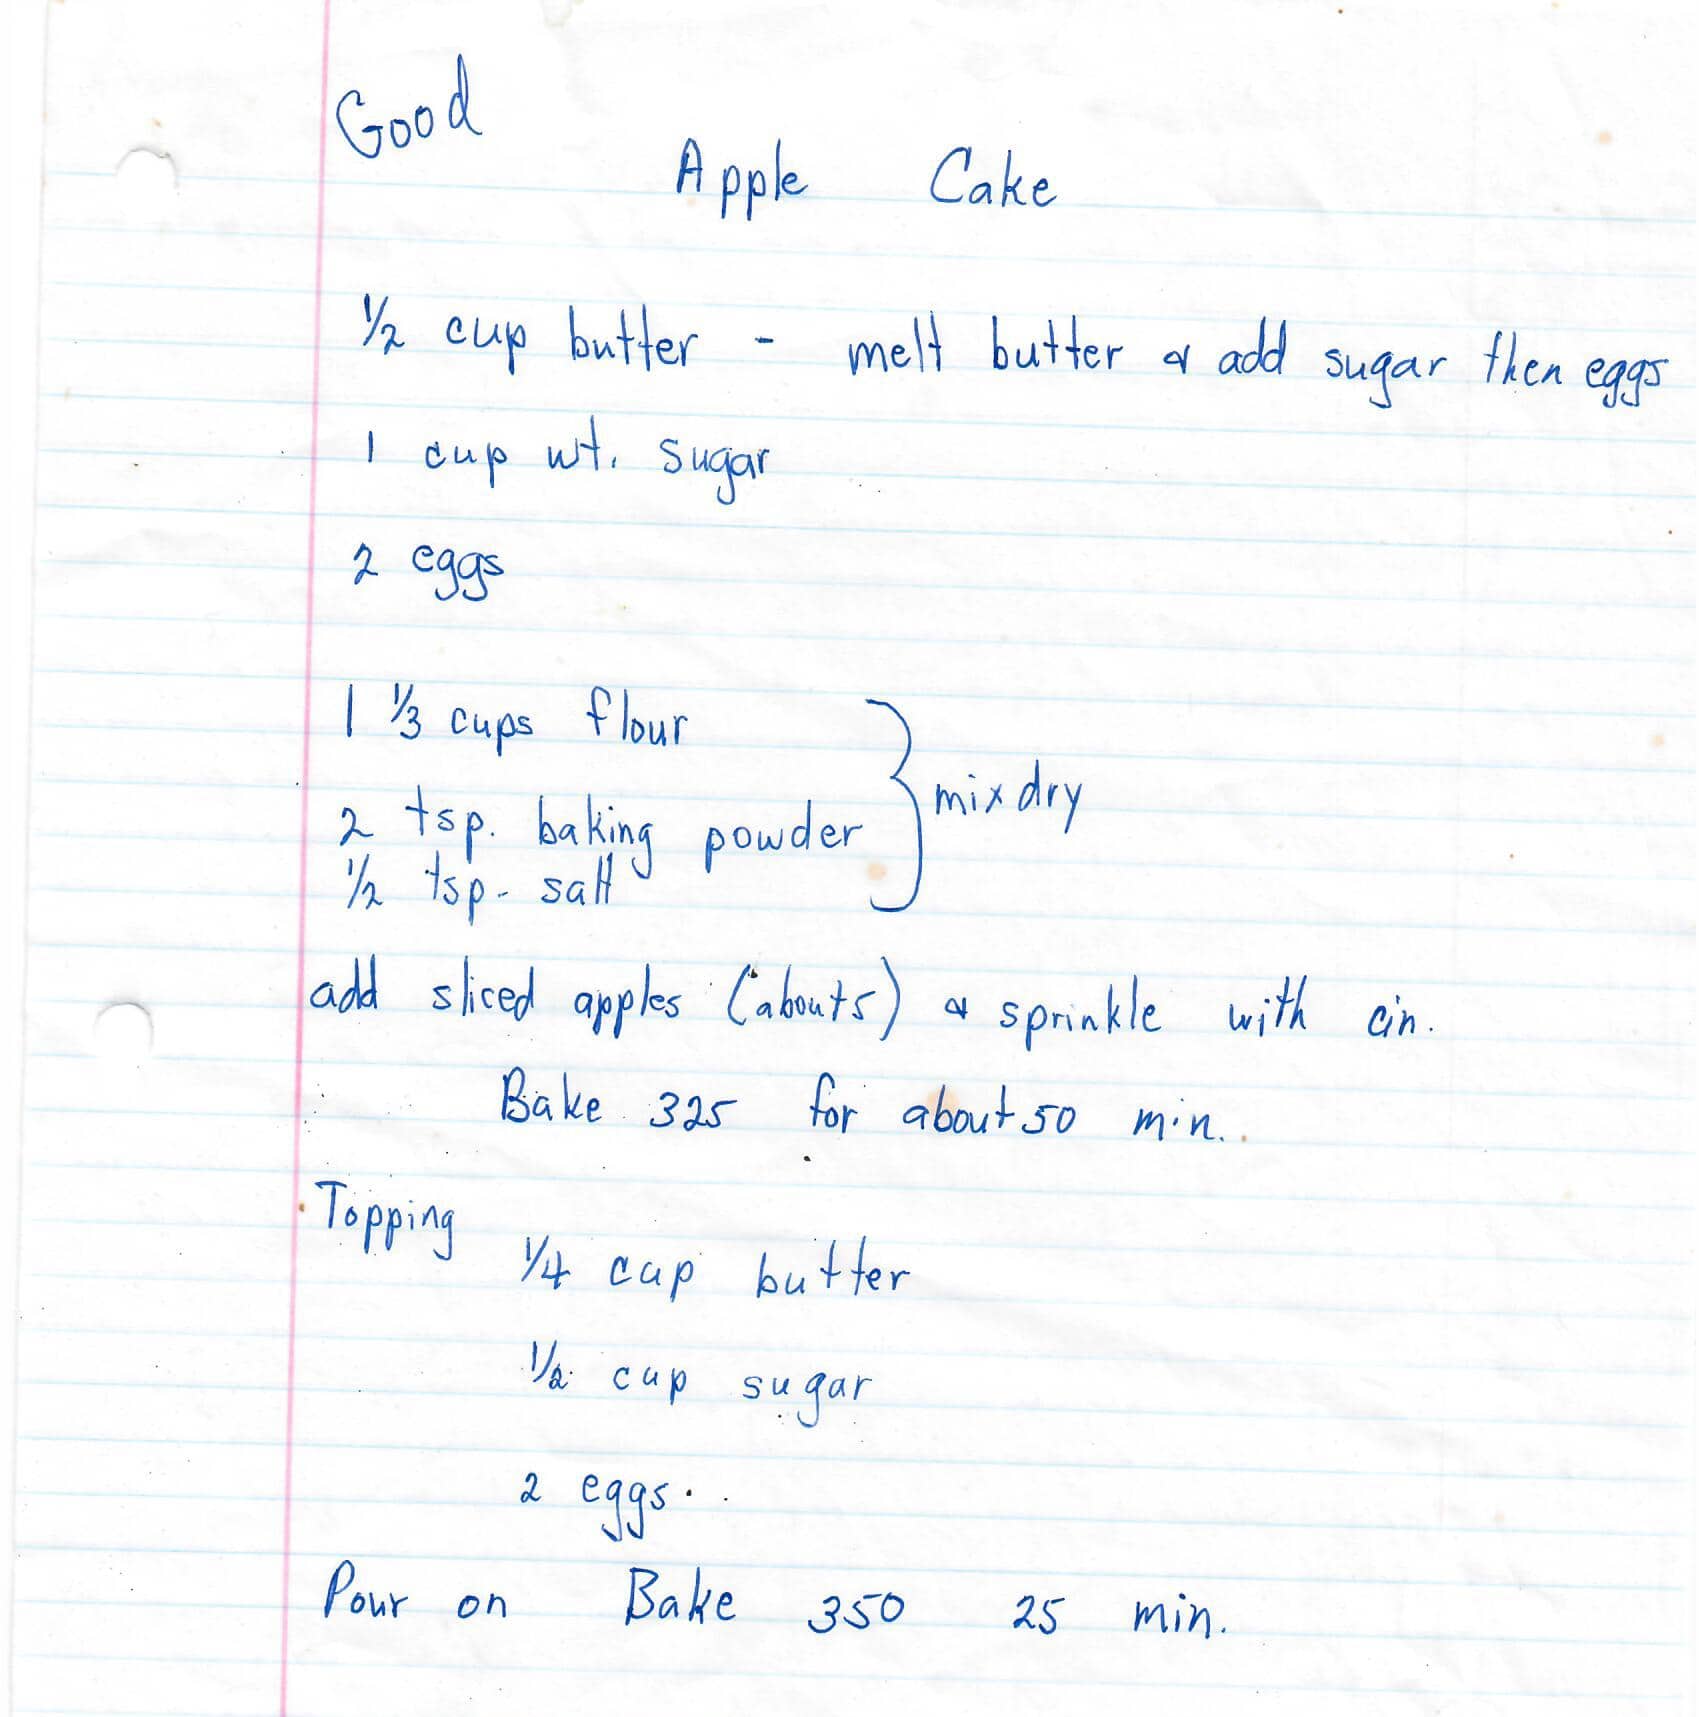 Good
Apple Cake
½ cup butter - melt butter & add sugar then eggs
1 cup wt. sugar
2 eggs
1 ⅓ cups flour
2 tsp. baking powder
½ tsp. salt
mix dry
add sliced apples (about 5) & sprinkle with cin.
Bake 325 for about 50 min.
Topping
¼ cup butter
½ cup sugar
2 eggs.
Pour on Bake 350 25 min.